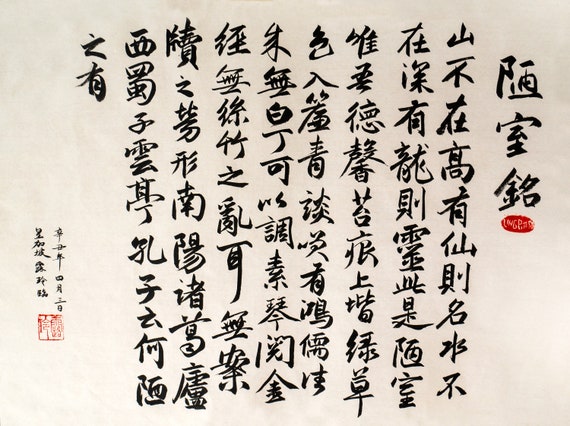 陋室銘
山不在高有仙則名水不
在深有龍則靈此是陋室
唯吾德馨苔痕上堦綠草
色入簾青談笑有鴻儒往
来無白丁可以調素琴閱金
經無絲竹之亂耳無案
牘之勞形南陽諸葛廬
西蜀子雲亭孔子云何陋
之有
辛丑年四月三日
星加坡玲臨